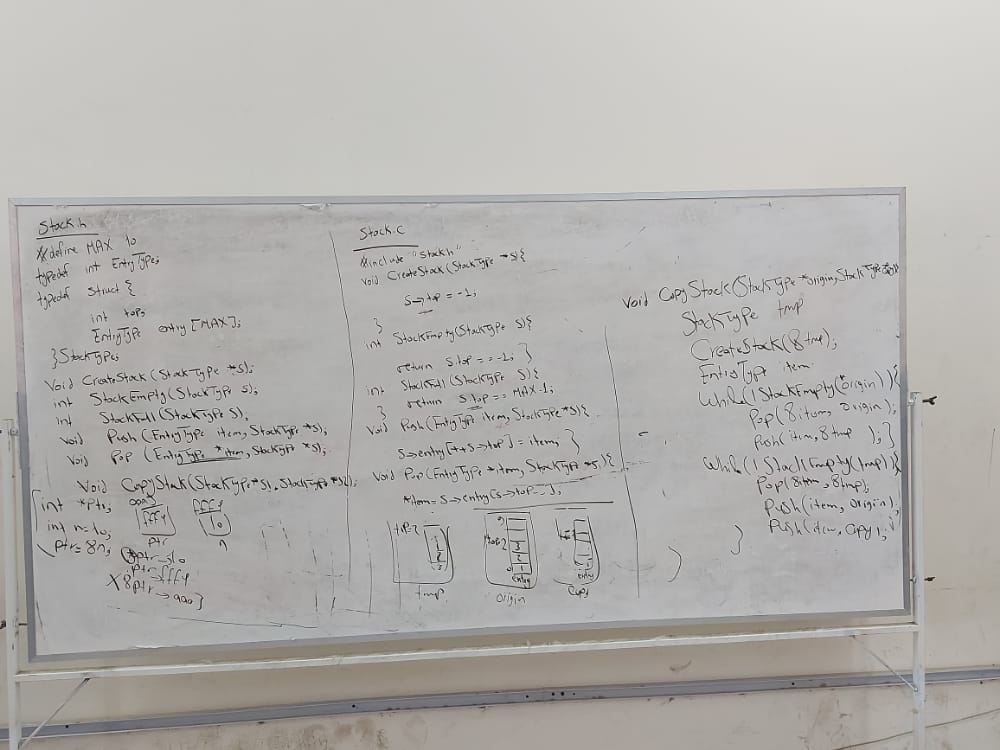 Stack.h
#define MAX 10
typedef int EntryType;
typedef struct {
int top;
EntryType entry [MAX];
}StackType;
Void CreateStack (StackType *s);
int StackEmpty (StackType s);
int StackFull (StackType s);
void Push (EntryType item, StackType *s);
void Pop (EntryType *item, StackType *s);
Void CopyStack (StackType *s1, StackType *s2);
int *ptr;
int n=10;
ptr=&n;
aaaj
fff4
ptr
fff4
10
n
*ptr→10
ptr→fff4
X &ptr→aaaj
Stack.c
#include "Stack.h"
Void CreateStack (StackType *s){
s→top = -1;
}
int StackEmpty (StackType s){
return s.top == -1; }
int StackFull (StackType s){
return s.top == MAX-1;
}
Void Push (EntryType item, StackType *s){
s→entry[++s→top] = item; }
Void Pop (EntryType *item, StackType *s){
*item = s→entry[s→top--];
top=2
1
2
3
tmp
top=2
3
2
1
0
entry
Origin
entry
Copy
Void CopyStack (StackType *origin, StackType
StackType tmp
CreateStack (&tmp);
EntryType item
While (!StackEmpty (*origin)){
Pop (&item, origin);
Push (item, &tmp ); }
While (!StackEmpty (tmp)){
Pop (&item, &tmp);
Push (item, origin);
Push (item, copy);
}
}